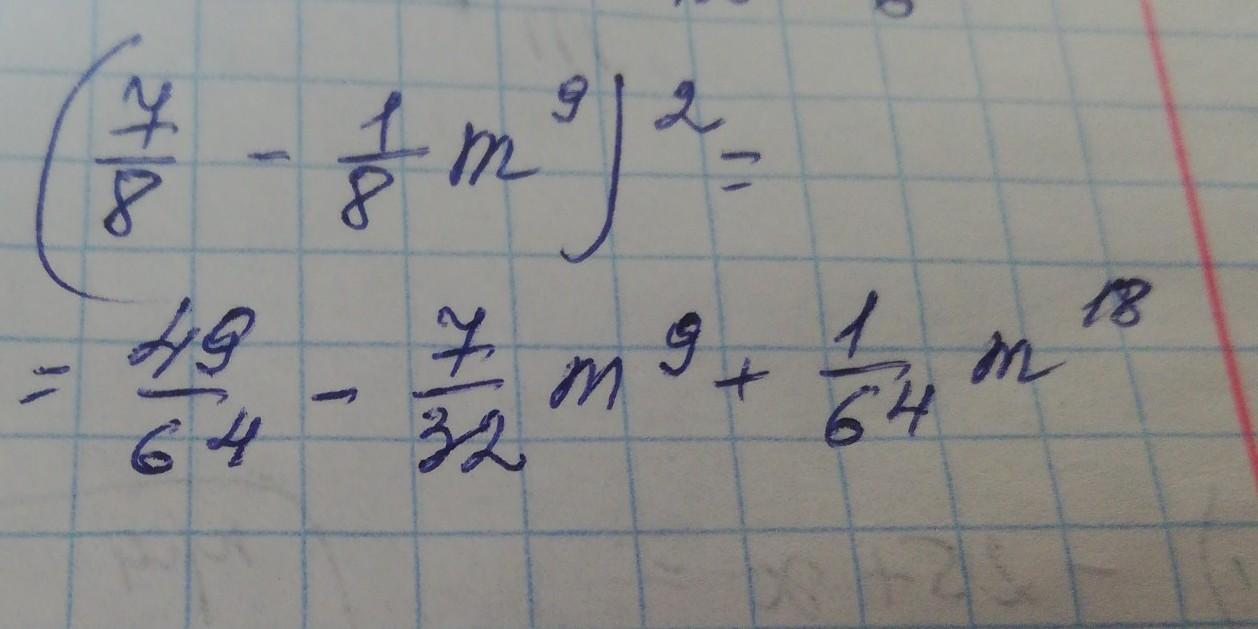 (7/8 - 1/8 m^9)^2 =
= 49/64 - 7/32 m^9 + 1/64 m^18